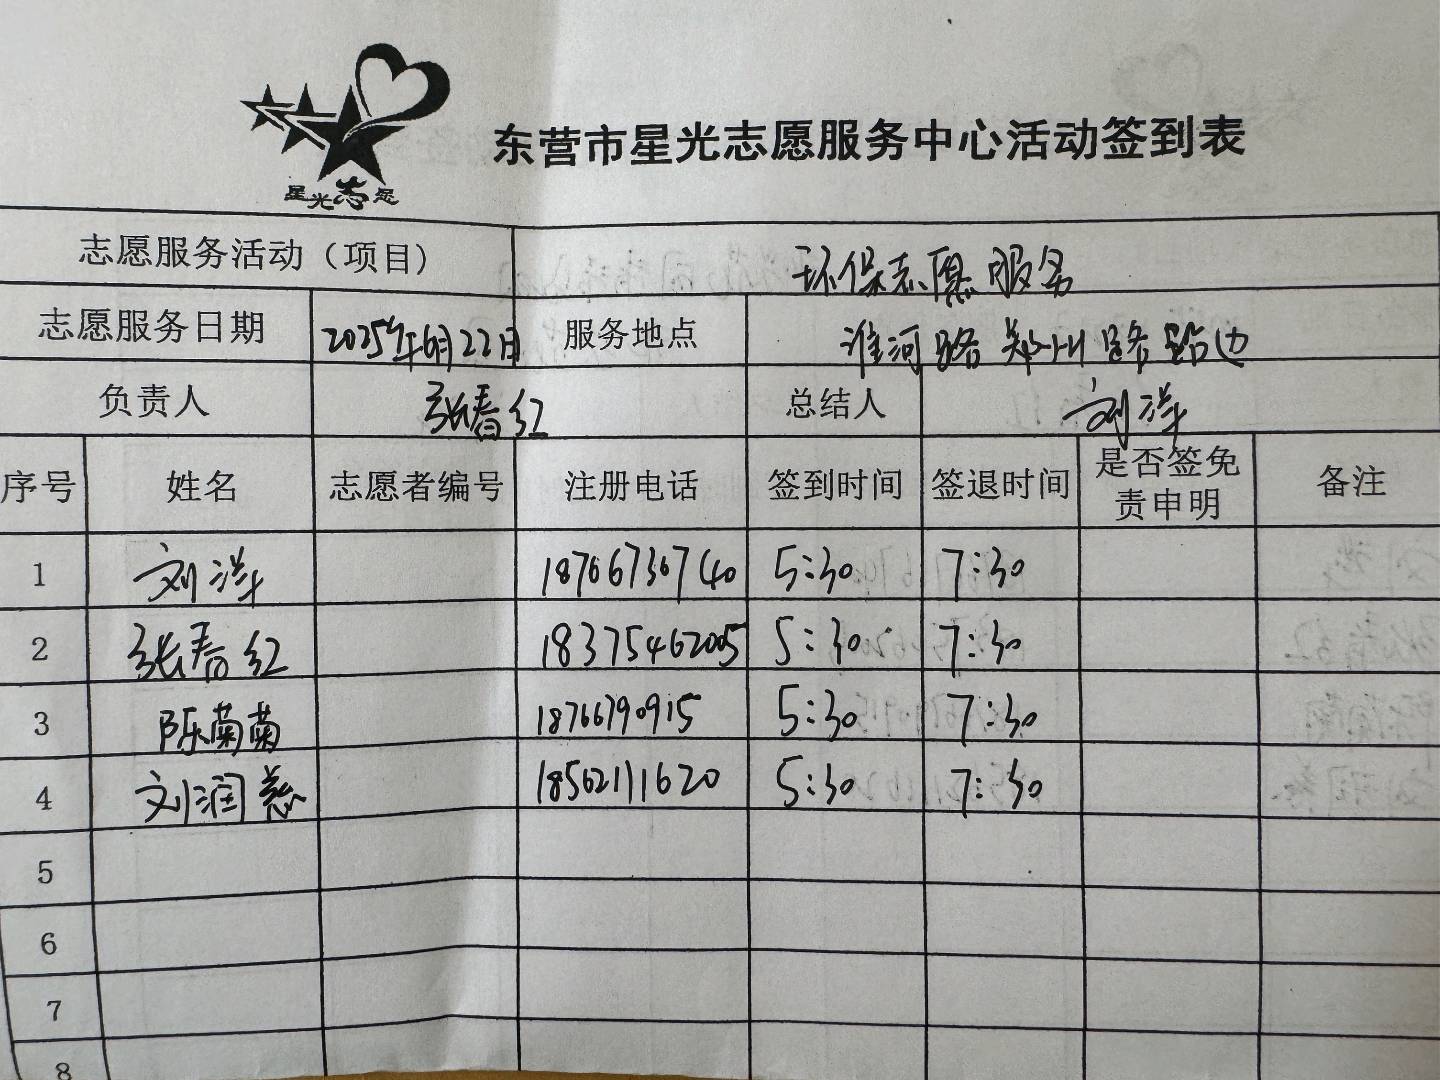 星光志愿
东营市星光志愿服务中心活动签到表
志愿服务活动（项目） 环保志愿服务
志愿服务日期 2025年6月22日 服务地点 淮河路郑州路路边
负责人 张春红 总结人 刘洋
序号 姓名 志愿者编号 注册电话 签到时间 签退时间 是否签免责申明 备注
1 刘洋 18766736740 5:30 7:30
2 张春红 18375462005 5:30 7:30
3 陈菊菊 18766790915 5:30 7:30
4 刘润慈 18562111620 5:30 7:30
5
6
7
8